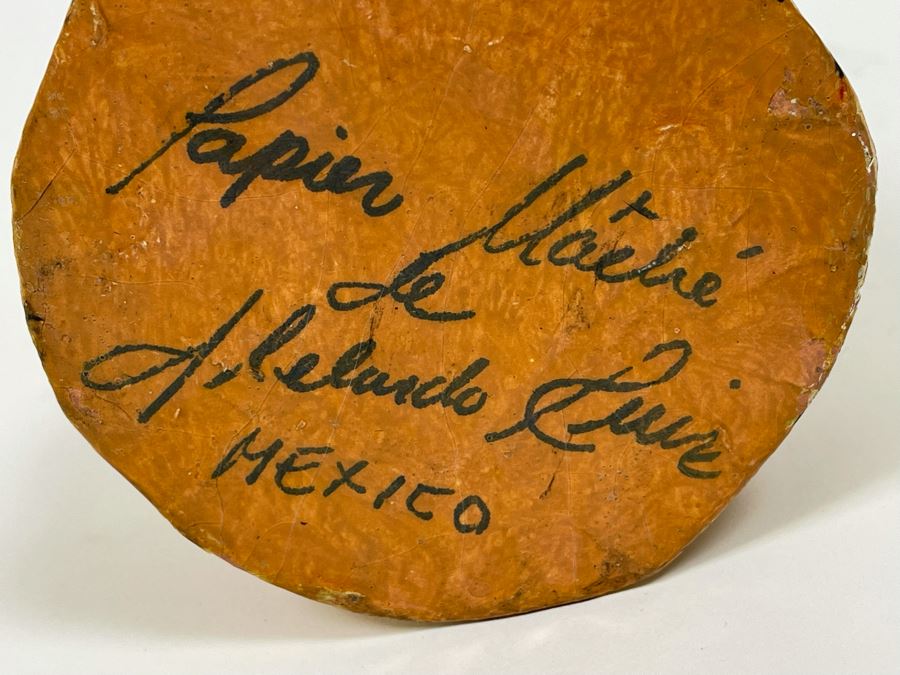 Papier Mâché
de
Abelardo Ruiz
MEXICO